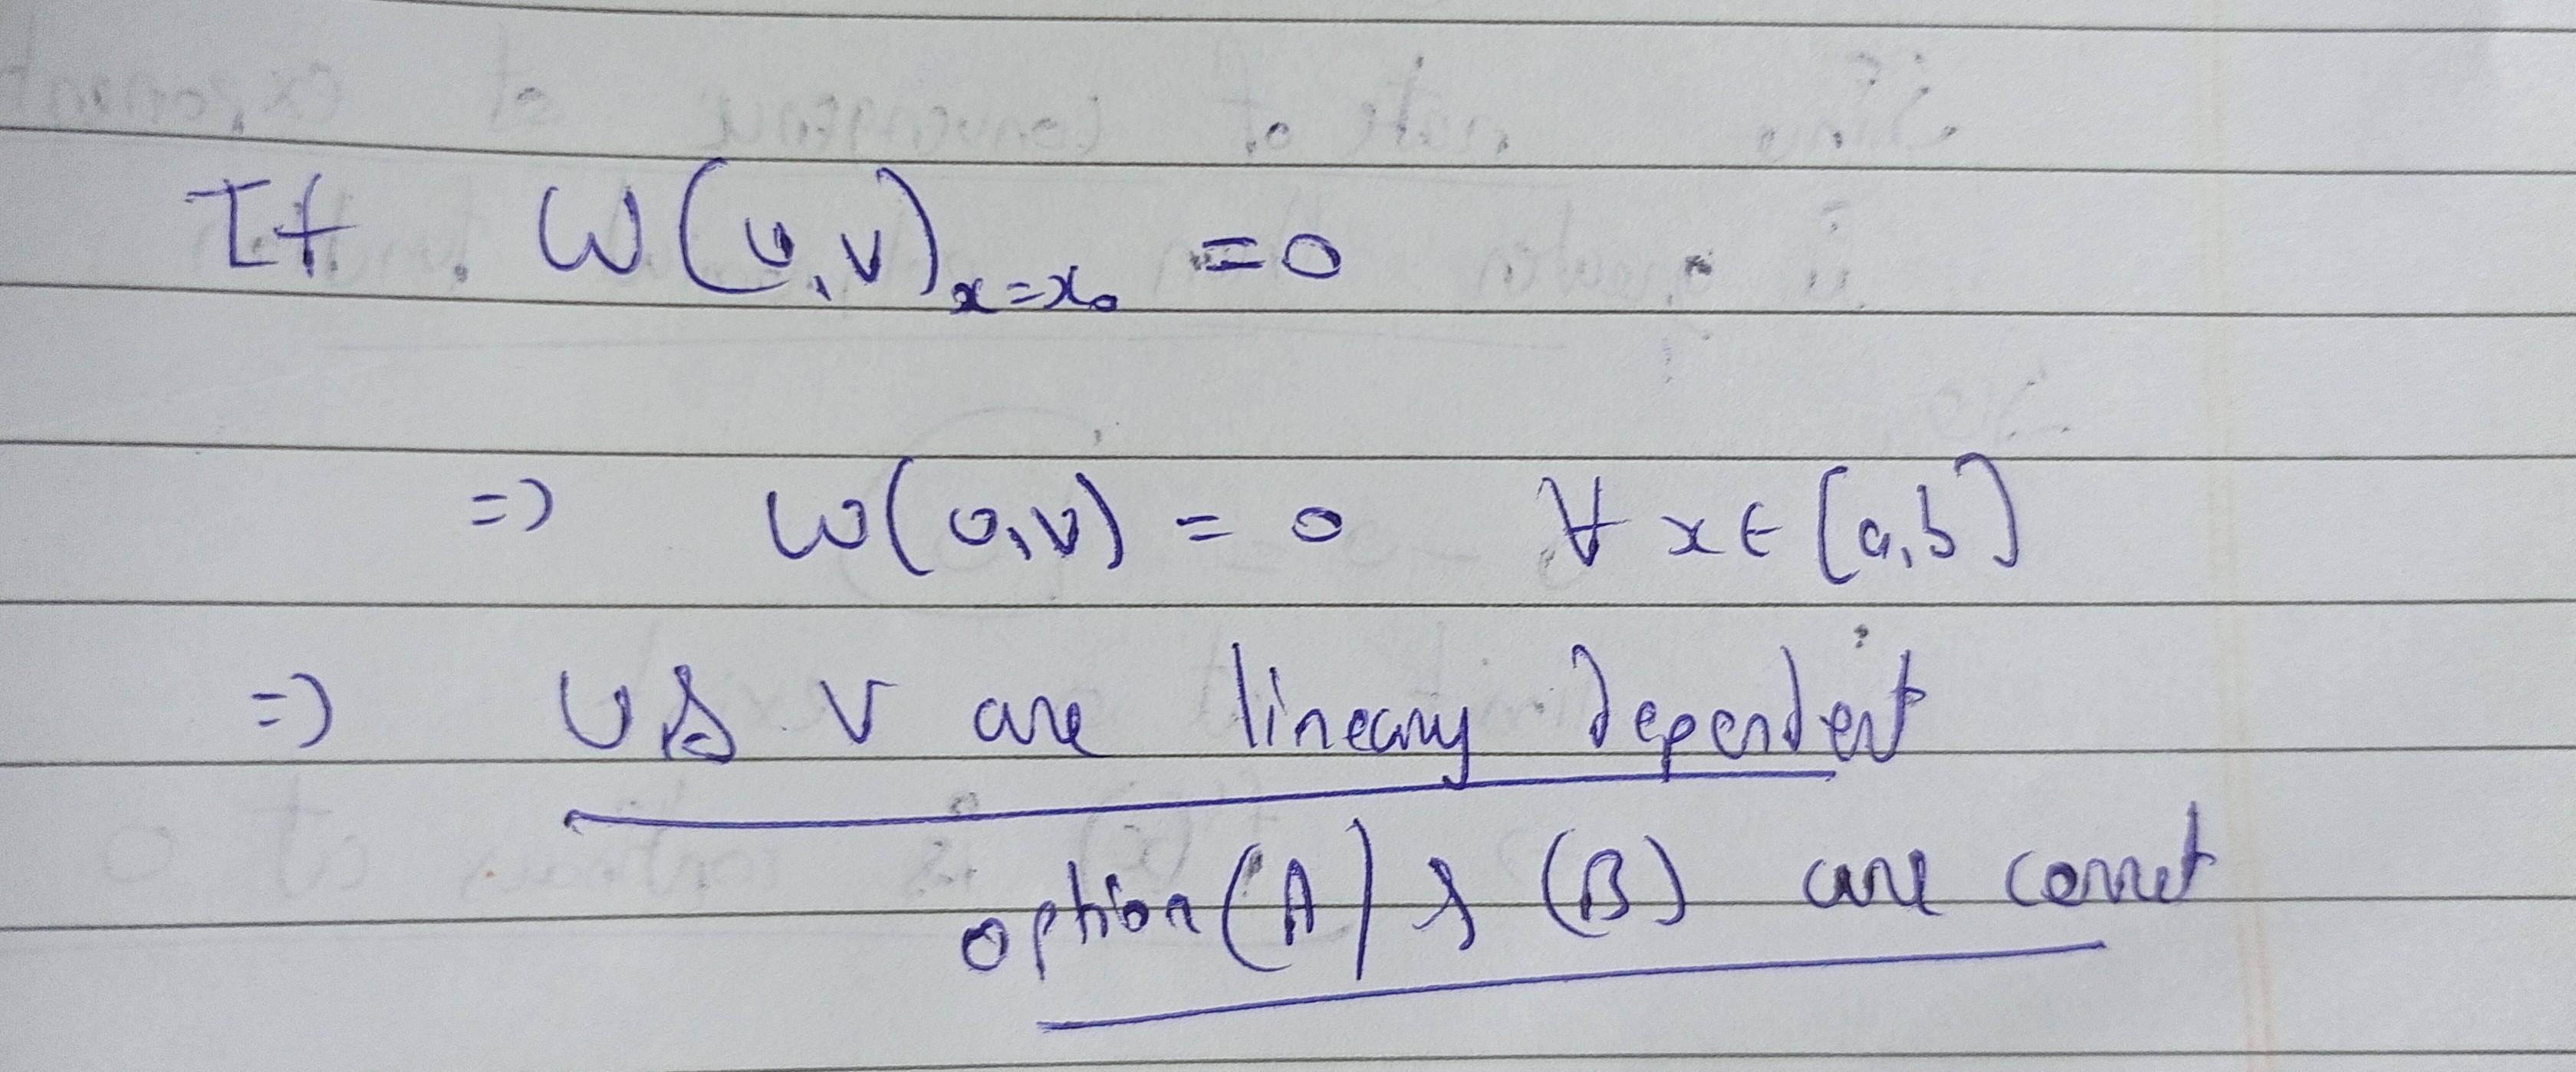 If W(u,v)x=x₀ =0
=> W(u,v) = 0 ∀ x∈[a,b]
=> U & V are lineary dependent
option (A) & (B) are correct